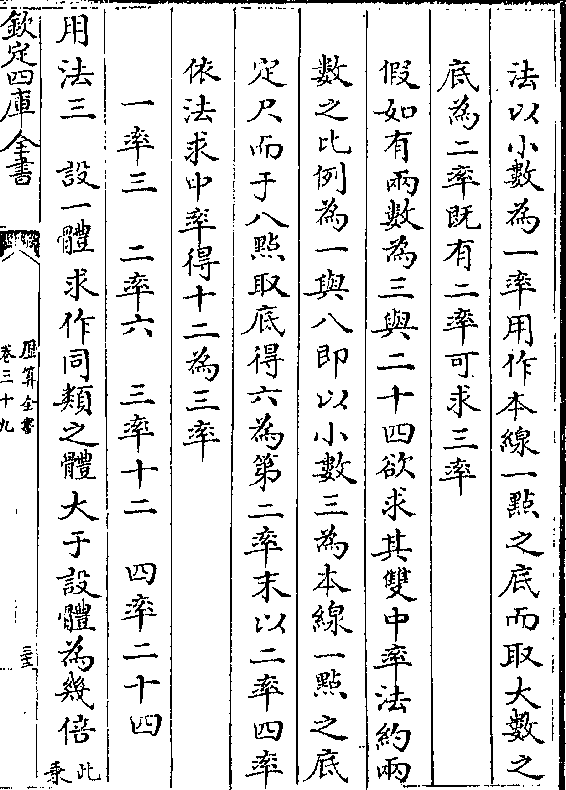 法以小數為一率用作本線一點之底而取大數之
底為二率既有二率可求三率
假如有兩數為三與二十四欲求其雙中率法約兩
數之比例為一與八即以小數三為本線一點之底
定尺而于八點取底得六為第二率末以二率四率
依法求中率得十二為三率
一率三　二率六　三率十二　四率二十四
用法三　設一體求作同類之體大于設體為幾倍此乗
欽定四庫全書
歴算全書
卷三十九